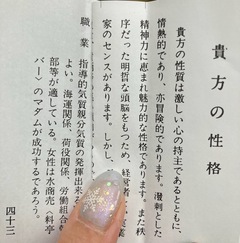 貴方の性格
貴方の性質は激しい心の持主であるとともに、
情熱的であり、亦冒険的であります。溌剌とした
精神力に恵まれ魅力的な性格であります。また秩
序だった明哲な頭脳をもつため、経営
家のセンスがあります。しかし、
職業 指導的気質親分気質の発揮出来る
よい。海運関係、荷役関係、労働組合
部等が適している。女性は水商売〈料亭
バー〉のマダムが成功するであろう。
四十三